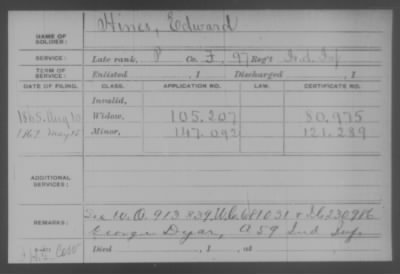 NAME OF SOLDIER: Hines, Edward
SERVICE: Late rank, P Co. F, 97 Reg't Ind. Inf
TERM OF SERVICE: Enlisted , 1 Discharged , 1
DATE OF FILING. CLASS. APPLICATION NO. LAW. CERTIFICATE NO.
Invalid,
1865. Aug 10 Widow, 105.207 80.975
1867 May 15 Minor, 147.092 121.289
ADDITIONAL SERVICES:
REMARKS: See W.O. 913839 W.C. 681031 & I.C. 230986
George Dyar, A 59 Ind Inf.
Died , 1 , at